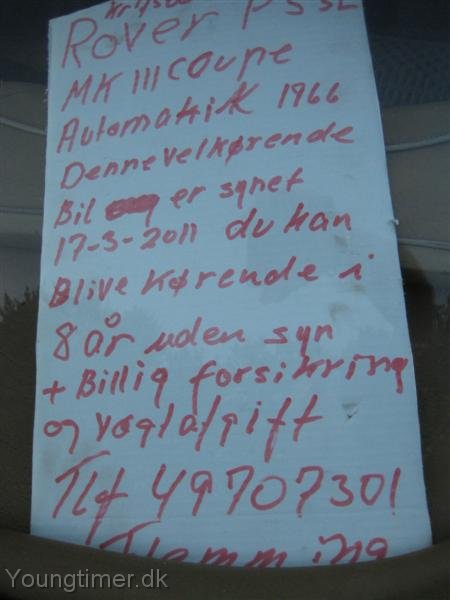 Rover P5 3L
MK III coupe
Automatik 1966
Dennevelkørende
Bil er synet
17-3-2011 du kan
Blive kørende i
8 år uden syn
+ Billig forsikring
og vægtafgift
Tlf 49707301
Flemming
Youngtimer.dk